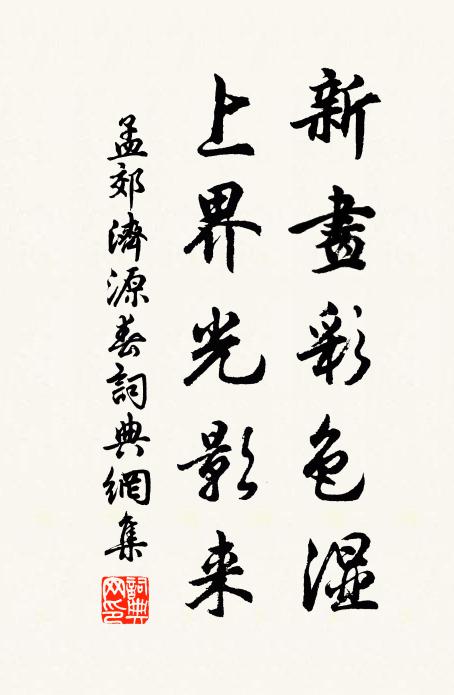 新畫彩色湿
上界光影来
孟郊濟源春詞典網集
詞典网印